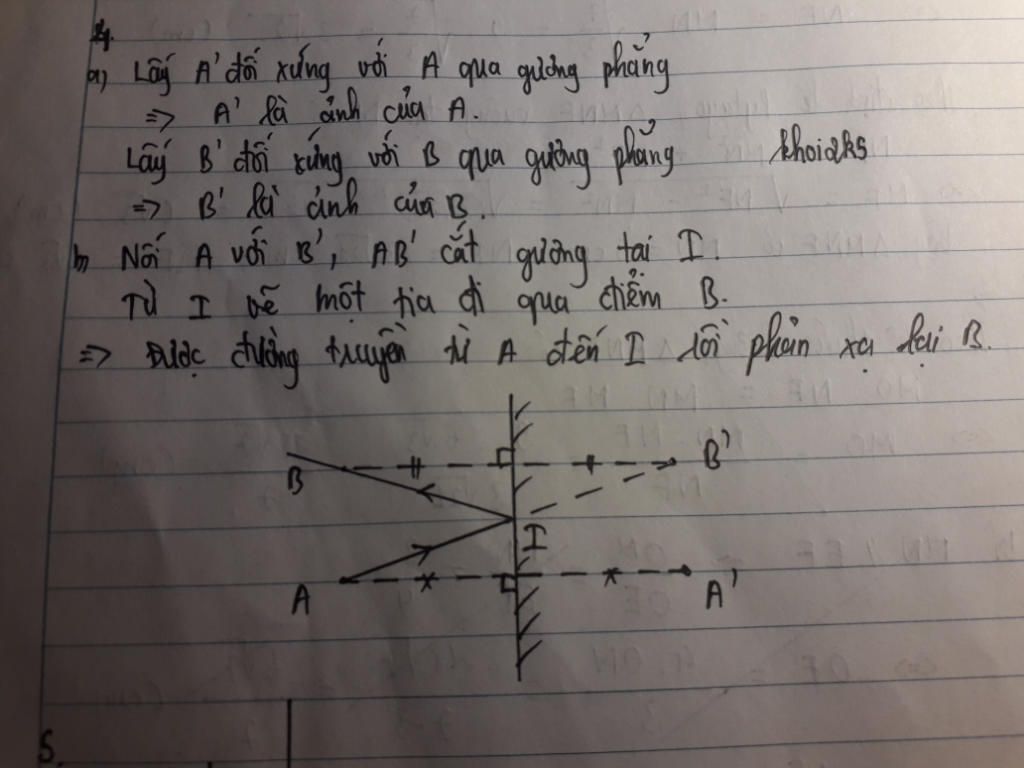 4.
a) Lấy A' đối xứng với A qua gương phẳng
=> A' là ảnh của A.
Lấy B' đối xứng với B qua gương phẳng khoiaks
=> B' là ảnh của B.
b) Nối A với B', AB' cắt gương tại I.
Từ I vẽ một tia đi qua điểm B.
=> Được đường truyền từ A đến I rồi phản xạ lại B.
B B'
I
A A'
5.